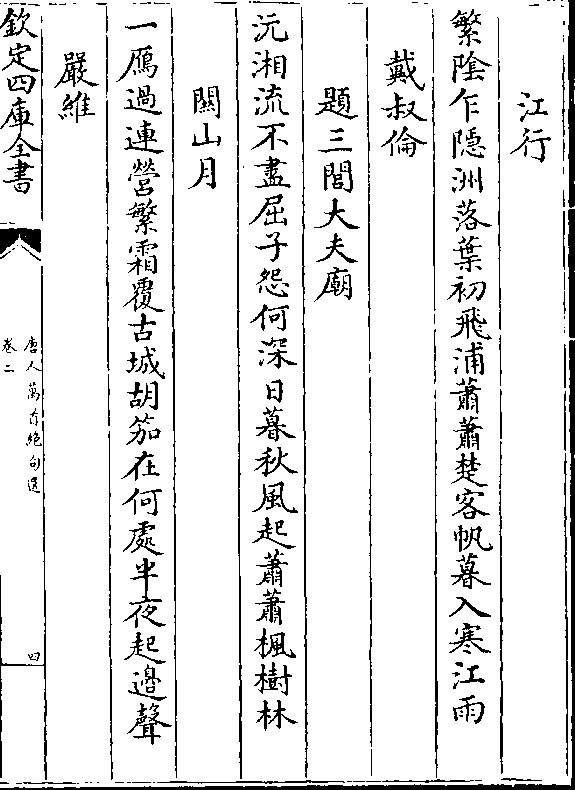 江行
繁陰乍隱洲落葉初飛浦蕭蕭楚客帆暮入寒江雨
戴叔倫
題三閭大夫廟
沅湘流不盡屈子怨何深日暮秋風起蕭蕭楓樹林
關山月
一鴈過連營繁霜覆古城胡笳在何處半夜起邊聲
嚴維
欽定四庫全書
唐人萬首絶句選
卷二
四